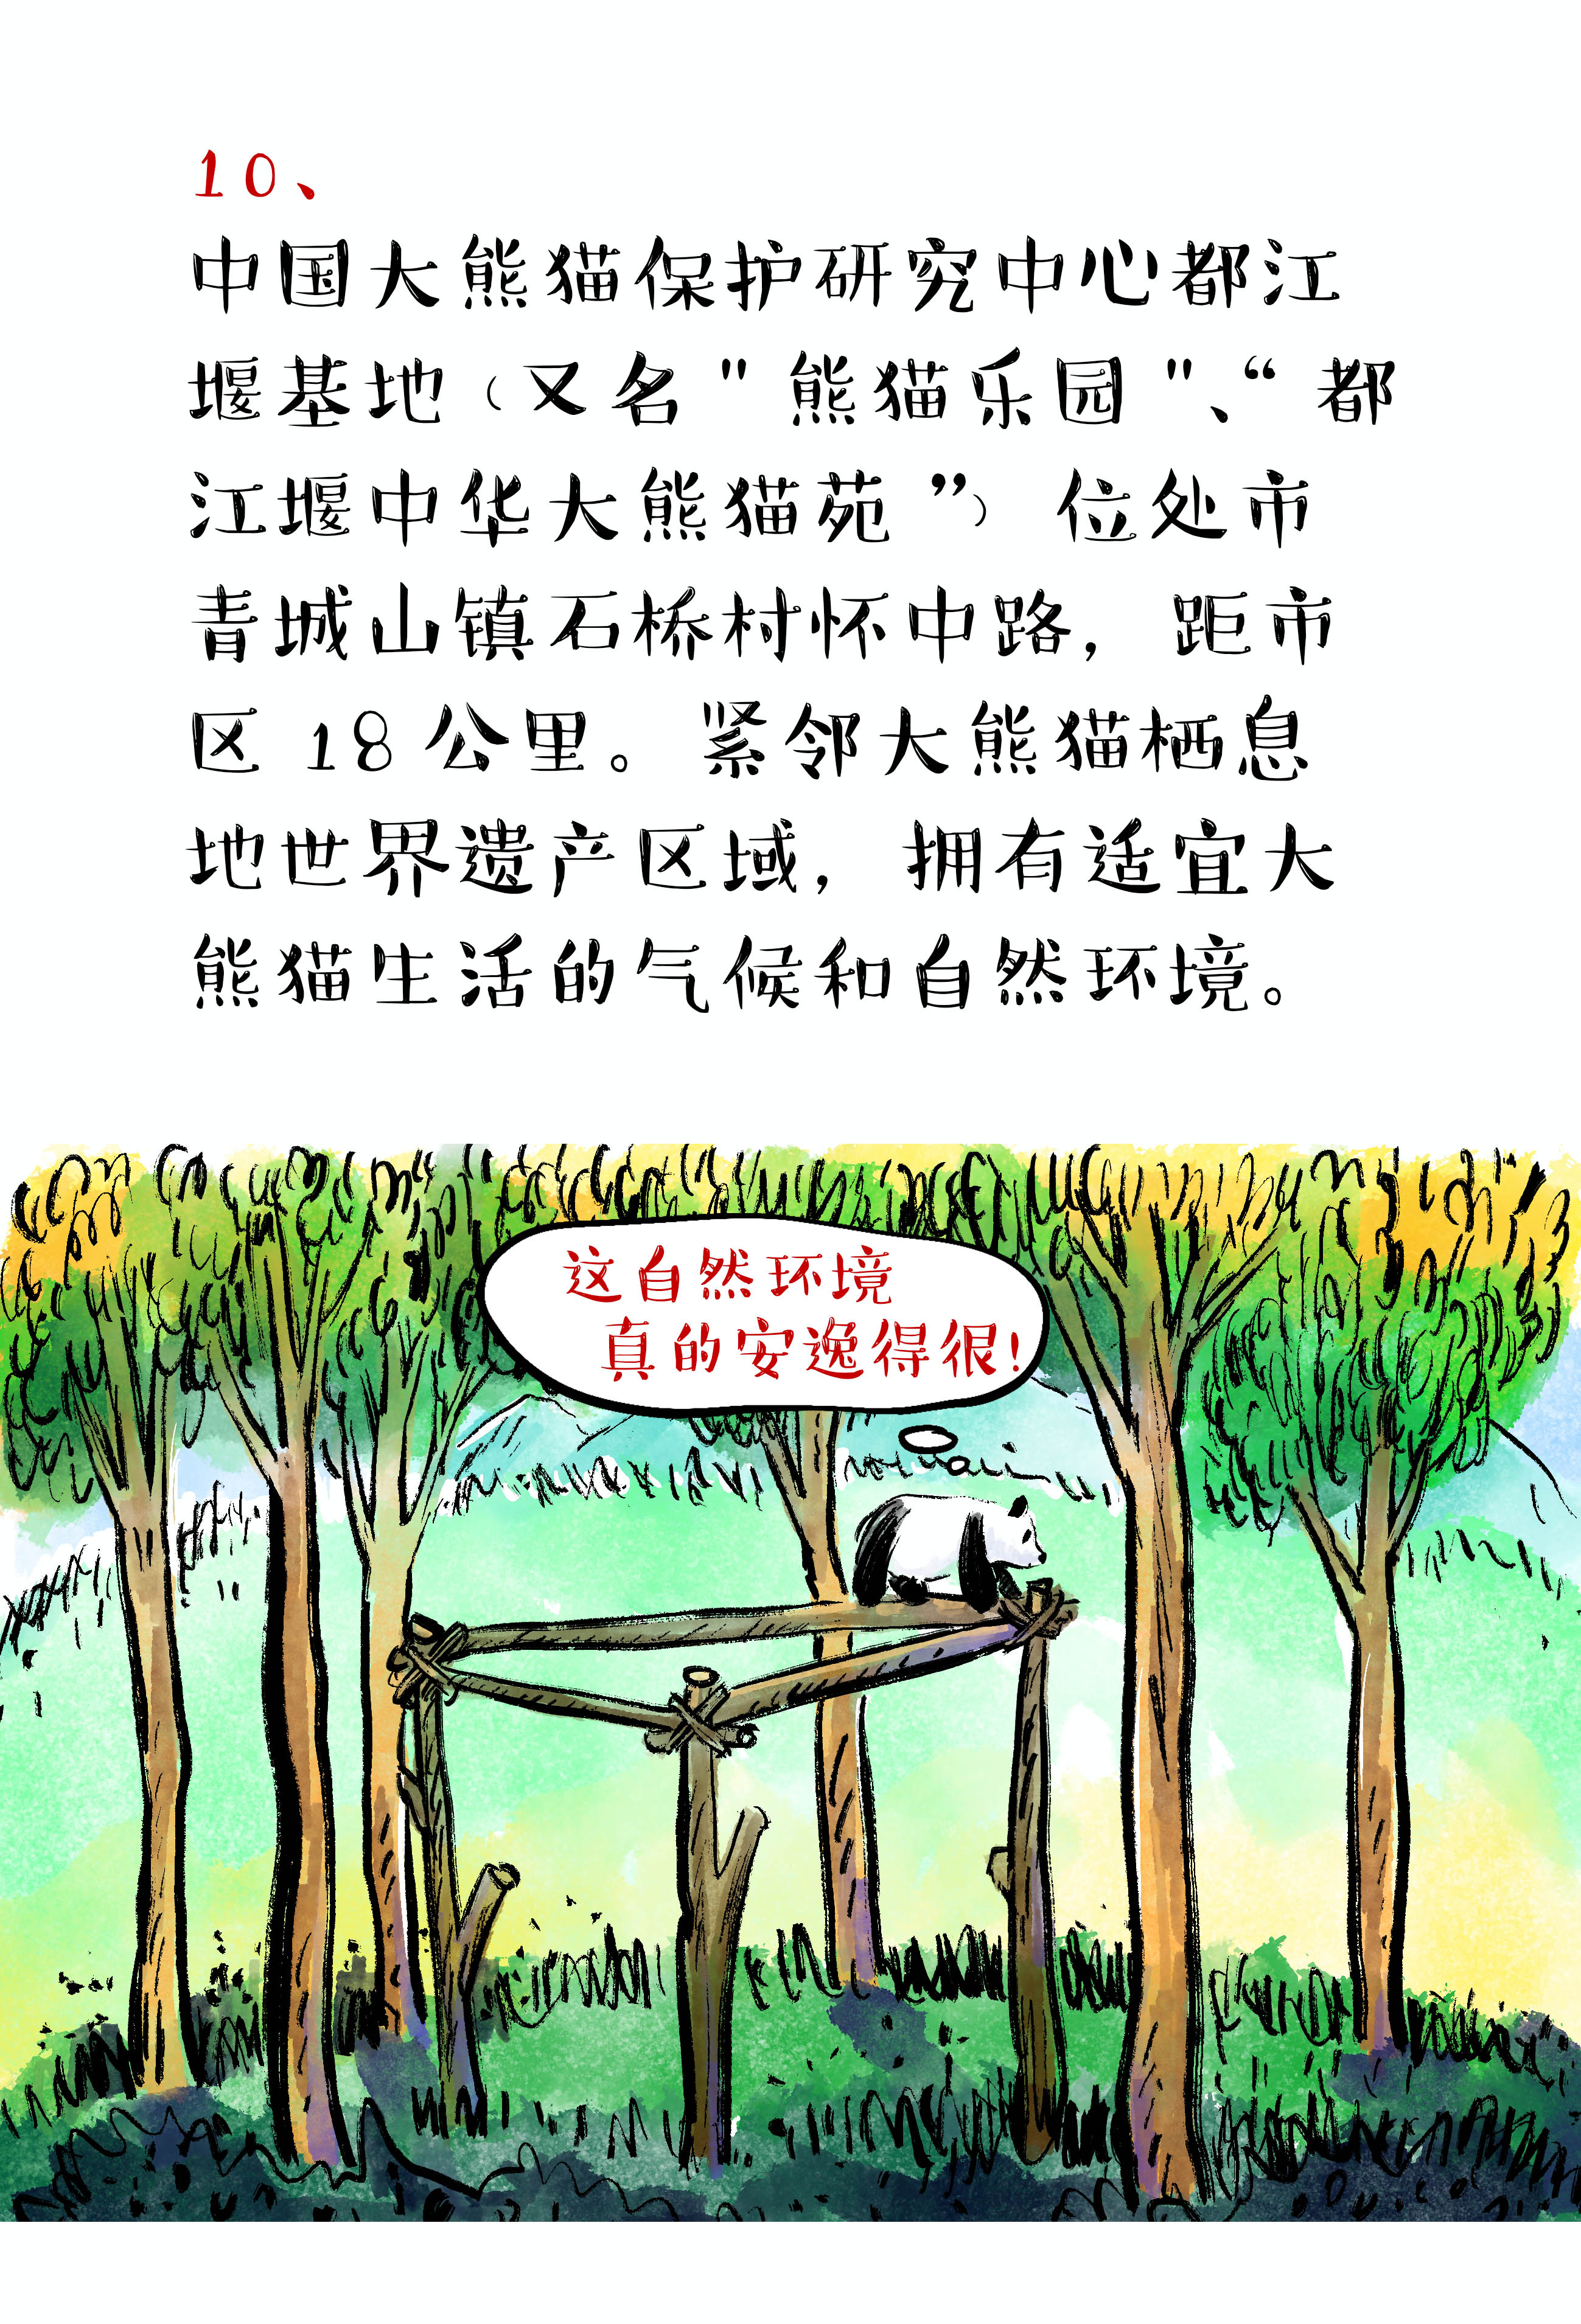 10、
中国大熊猫保护研究中心都江
堰基地（又名"熊猫乐园"、“都
江堰中华大熊猫苑”）位处市
青城山镇石桥村怀中路，距市
区 18 公里。紧邻大熊猫栖息
地世界遗产区域，拥有适宜大
熊猫生活的气候和自然环境。
这自然环境
真的安逸得很!